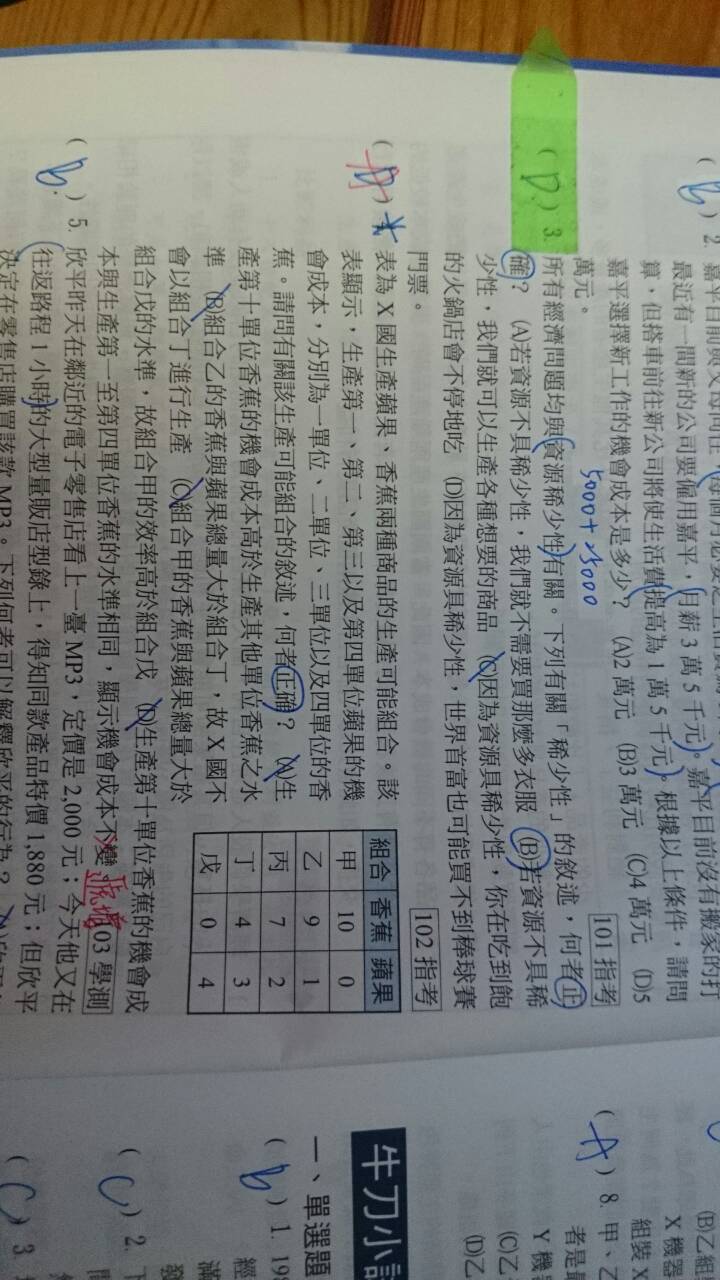 (B) 2. 嘉平目前與父母同住
最近有一間新的公司要僱用嘉平,月薪 3 萬 5 千元。嘉平目前沒有搬家的打
算,但搭車前往新公司將使生活費提高為 1 萬 5 千元。根據以上條件,請問
嘉平選擇新工作的機會成本是多少? (A)2 萬元 (B)3 萬元 (C)4 萬元 (D)5
萬元。 101 指考
5000+25000
(D.) 3. 所有經濟問題均與資源稀少性有關。下列有關「稀少性」的敘述,何者正
確? (A)若資源不具稀少性,我們就不需要買那麼多衣服 (B)若資源不具稀
少性,我們就可以生產各種想要的商品 (C)因為資源具稀少性,你在吃到飽
的火鍋店會不停地吃 (D)因為資源具稀少性,世界首富也可能買不到棒球賽
門票。 102 指考
表為 X 國生產蘋果、香蕉兩種商品的生產可能組合。該
表顯示,生產第一、第二、第三以及第四單位蘋果的機
會成本,分別為一單位、二單位、三單位以及四單位的香
蕉。請問有關該生產可能組合的敘述,何者正確? (A)生
產第十單位香蕉的機會成本高於生產其他單位香蕉之水
準 (B)組合乙的香蕉與蘋果總量大於組合丁,故 X 國不
會以組合丁進行生產 (C)組合甲的香蕉與蘋果總量大於
組合戊的水準,故組合甲的效率高於組合戊 (D)生產第十單位香蕉的機會成
本與生產第一至第四單位香蕉的水準相同,顯示機會成本不變。 103 學測
遞增
組合 香蕉 蘋果
甲 10 0
乙 9 1
丙 7 2
丁 4 3
戊 0 4
(B.) 5. 欣平昨天在鄰近的電子零售店看上一臺 MP3,定價是 2,000 元;今天他又在
往返路程 1 小時的大型量販店型錄上,得知同款產品特價 1,880 元;但欣平
決定在零售店購買該款 MP3。下列何者可以解釋欣平的行為?
(B)乙組
X 機器
組裝
(A) 8. 甲、乙
者是
Y 機
(C)乙
(D)乙
牛刀小試
一、單選題
(B) 1. 198
經
滿
發
(C) 2. 下
(C) 3.